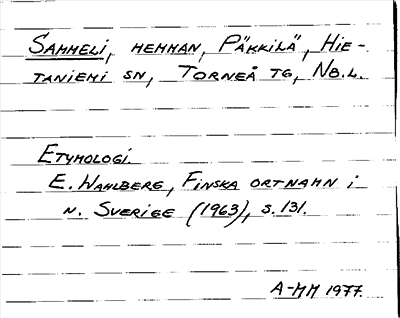 SAMMELI, HEMMAN, PÄKKILÄ, HIE-
TANIEMI SN, TORNEÅ TG, NB.L.
ETYMOLOGI.
E. WAHLBERG, FINSKA ORTNAMN i
N. SVERIGE (1963), S. 131.
A-MM 1977.